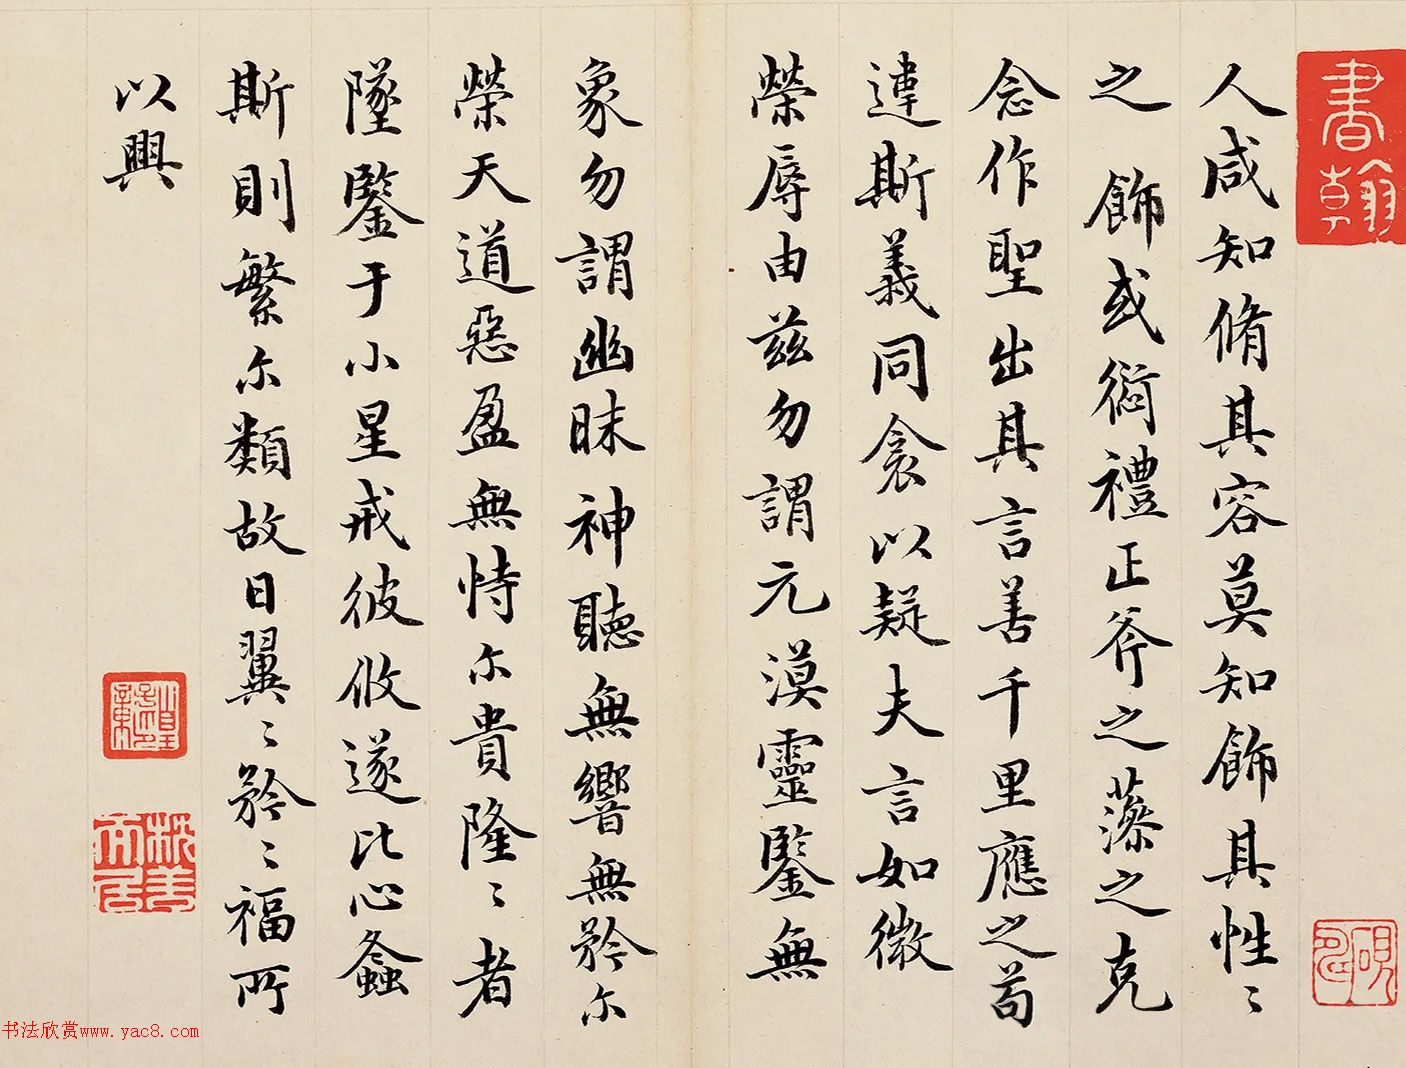 書翰
人咸知脩其容莫知飾其性〻
之飾或愆禮正斧之藻之克
念作聖出其言善千里應之苟
違斯義同衾以疑夫言如微
榮辱由兹勿謂元漠靈鑒無
象勿謂幽昧神聽無響無矜尔
榮天道惡盈無恃尔貴隆〻者
墜鑒于小星戒彼攸遂比心螽
斯則繁尔類故曰翼〻矜〻福所
以興
书法欣赏www.yac8.com